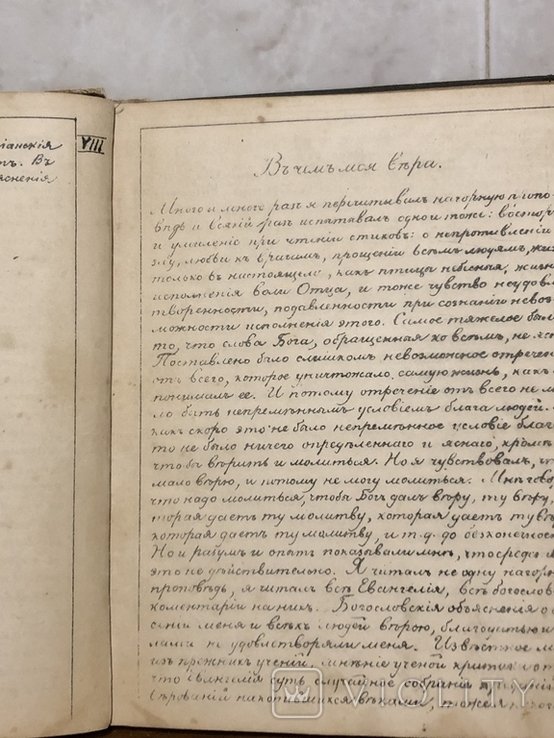 ианскія
тъ. Въ
ясненія
VIII
Въ чемъ моя вѣра.
Много и много разъ я перечитывалъ нагорную пропо-
вѣдь и всякій разъ испытывалъ одно и тоже: востор
и умиленіе при чтеніи стиховъ: о непротивленіи
злу, любви къ врагамъ, прощеніи всѣмъ людямъ, жи
только въ настоящемъ, какъ птицы небесныя, жизн
исполненія воли Отца, и тоже чувство неудовл
творенности, подавленности при сознаніи невоз
можности исполненія этого. Самое тяжелое был
то, что слова Бога, обращенная ко всѣмъ, не
Поставлено было слишкомъ невозможное отречен
отъ всего, которое уничтожало самую жизнь, какъ
понимаемъ ее. И потому отреченіе отъ всего не м
ло быть непремѣннымъ условіемъ блага людей.
какъ скоро это не было непремѣнное условіе благ
то не было ничего опредѣленнаго и яснаго, кромѣ
чтобъ вѣрить и молиться. Но я чувствовалъ, ч
мало вѣрю, и потому не могу молиться. Мнѣ гово
что надо молиться, чтобы Богъ далъ вѣру, ту вѣру,
торая даетъ ту молитву, которая даетъ ту вѣ
которая даетъ ту молитву, и т. д. до безконечнос
Но и разумъ и опытъ показывали мнѣ, что средс
это не дѣйствительно. Я читалъ не одну нагор
проповѣдь, я читалъ всѣ Евангелія, всѣ богослов
коментаріи на нихъ. Богословскія объясненія о
сеніи меня и всѣхъ людей вѣрою, благодатью и
лами не удовлетворяли меня. Извѣстное м
изъ прежнихъ ученій, мнѣніе ученой критики о т
что Евангелія суть случайное собраніе
вѣрованій накопившихся вѣками, тоже н
VIOLITY